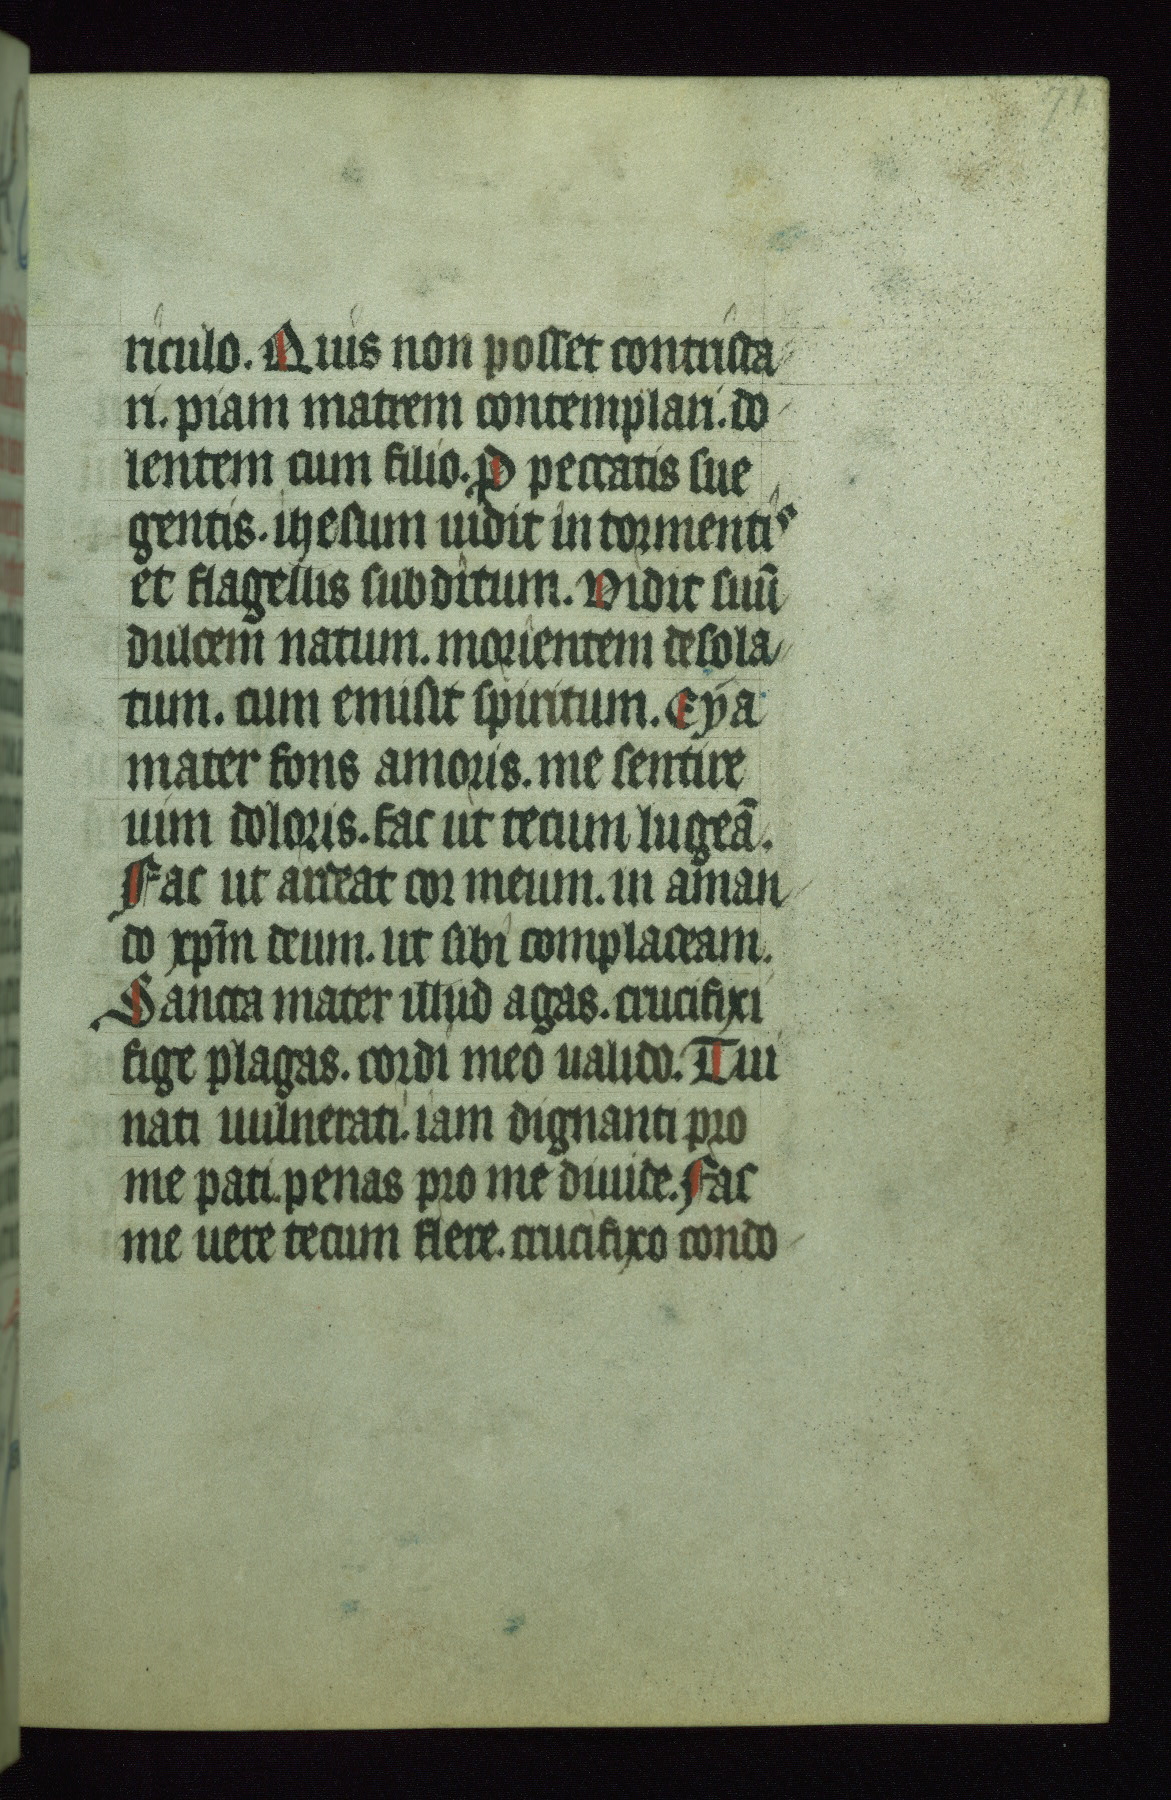 71
riculo. Quis non posset contrista
ri. piam matrem contemplari. do
lentem cum filio. P peccatis sue
gentis. ihesum uidit in tormentis
et flagellis subditum. Vidit suū
dulcem natum. morientem desola
tum. cum emisit spiritum. Eya
mater fons amoris. me sentire
uim doloris. fac ut tecum lugeā.
Fac ut ardeat cor meum. in aman
do xp̄m deum. ut sibi complaceam.
Sancta mater illud agas. crucifixi
fige plagas. cordi meo ualido. Tui
nati uulnerati. iam dignanti pro
me pati. penas pro me diuide. Fac
me uere tecum flere. crucifixo condo